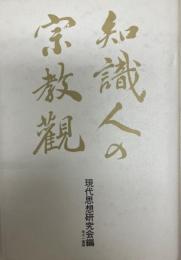 知識人の
宗教觀
現代思想研究会編